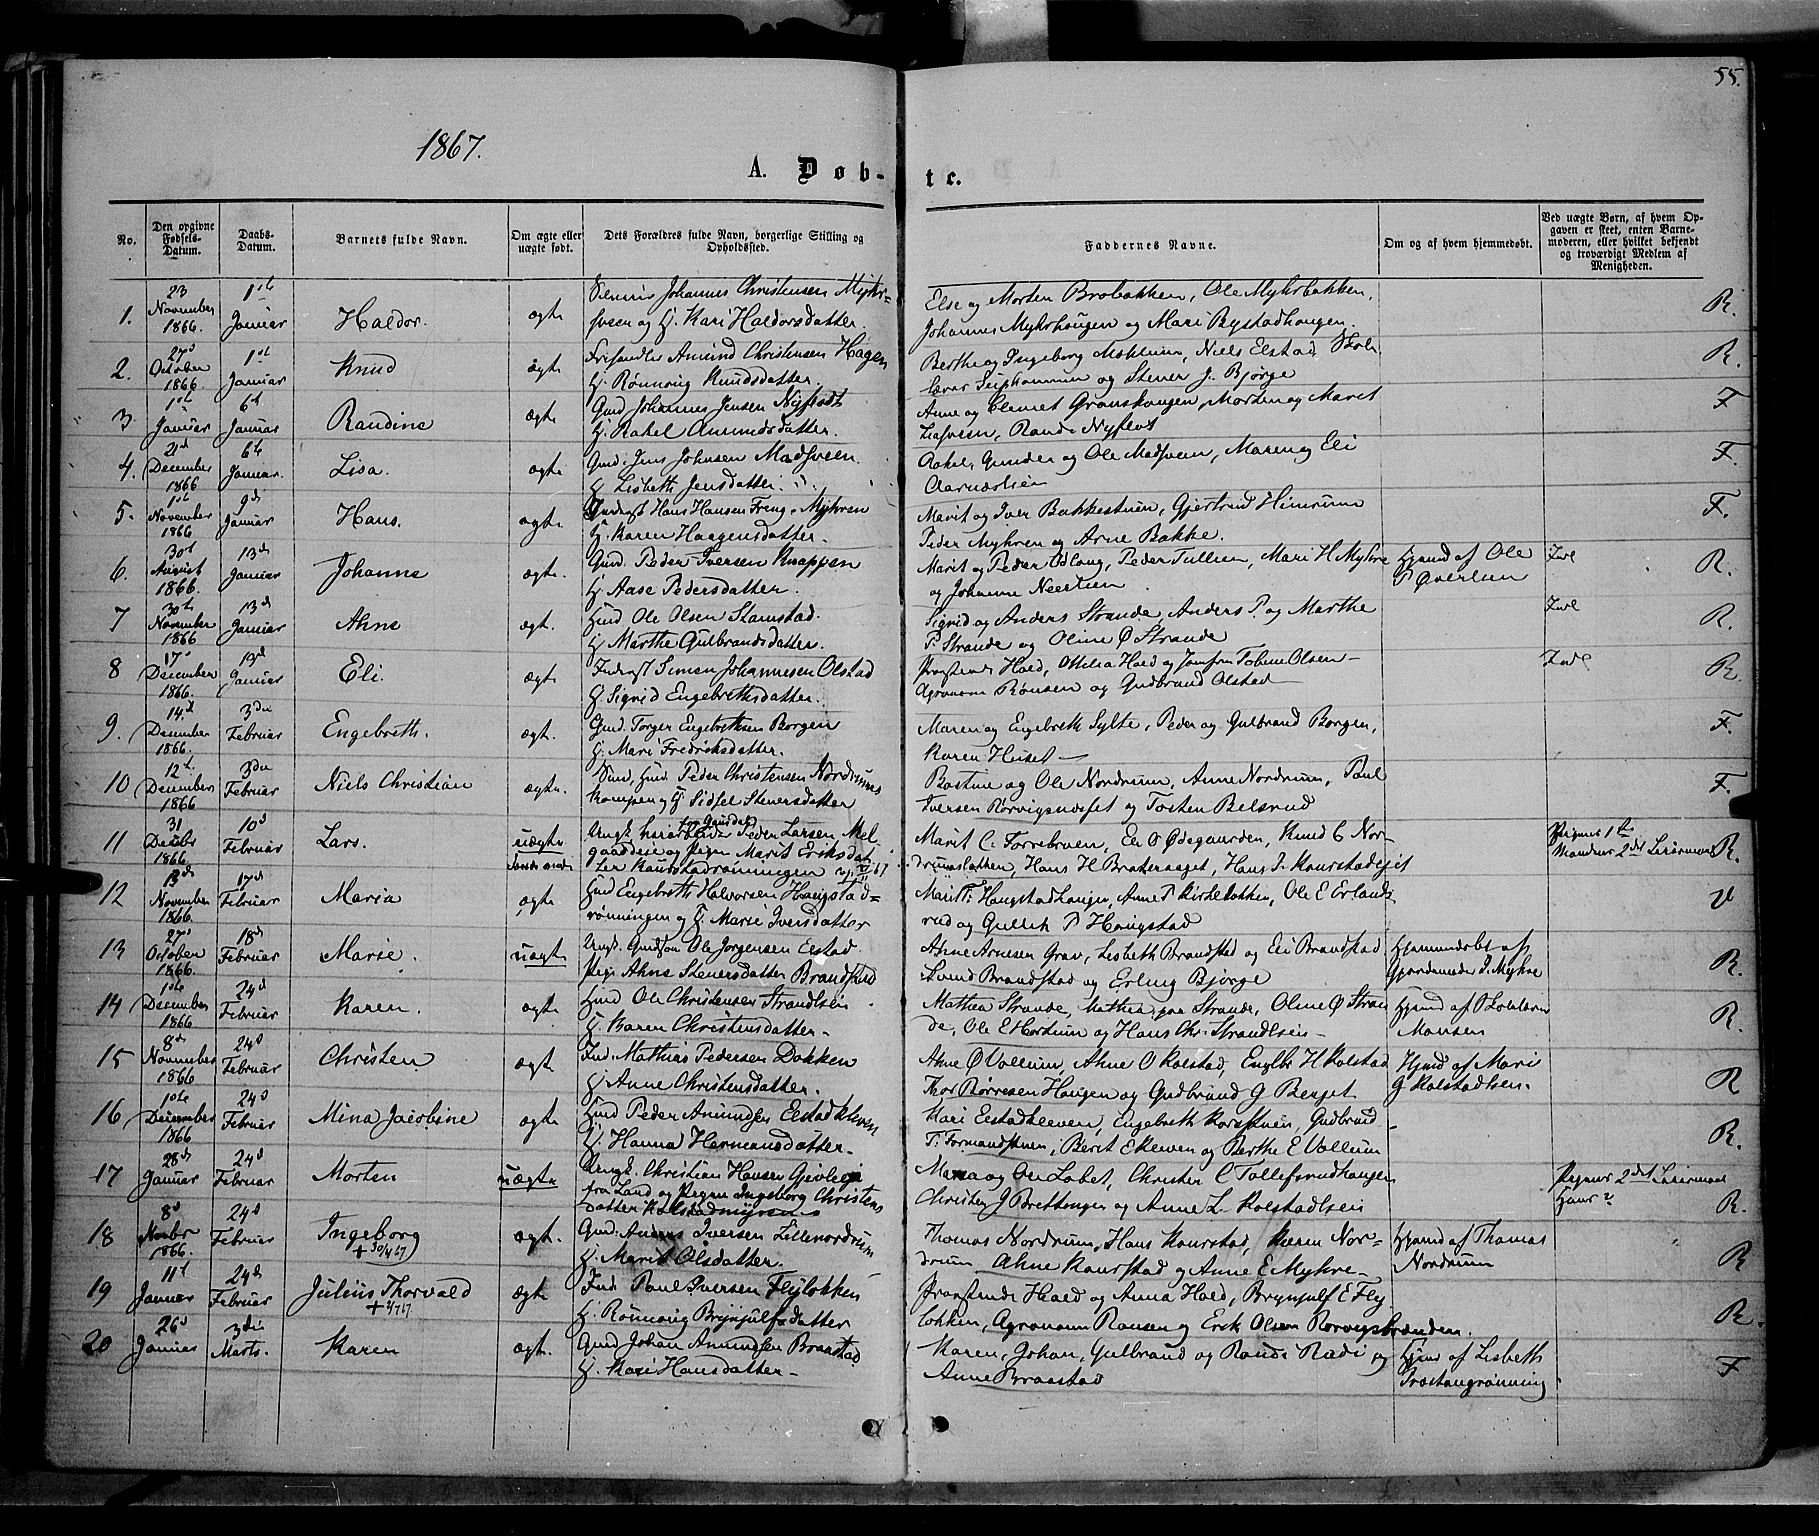 55.
1867.
A. Døb-te.
No.
Den opgivne Fødsels-Datum.
Daabs-Datum.
Barnets fulde Navn.
Om ægte eller uægte født.
Dets Forældres fulde Navn, borgerlige Stilling og Opholdssted.
Faddernes Navne.
Om og af hvem hjemmedøbt.
Ved uægte Børn, af hvem Opgaven er skeet, enten Barnemoderen, eller hvilket bekjendt og troværdigt Medlem af Menigheden.
1. 23 November 1866. 1ste Januar Haldor. ægte Johannes Christensen Myhrsveen og H. Kari Haldorsdatter.
Else og Morten Brobakken, Ole Myhrbakken,
Johannes Myhrhaugen og Mari Bystadhaugen. R.
2. 27d October 1866. 1st Januar Knud ægte Amund Christensen Hagen
H. Rønnoug Knudsdatter.
Berthe og Ingeborg Moklein, Niels Elstad
og Stener J. Bjørge R.
3. 1ste Januar 6t Januar Randine ægte Gmd Johannes Jensen Nyflodt
H. Rakel Amundsdatter.
Anne og Clemet Granshaugen, Morten og Marit
Randi Nyflot F
4. 21d December 1866 6te Januar. Lisa. ægte Gmd. Jens Johnsen Madsveen.
H. Lisbeth Jensdatter.
Gunder og Ole Madsveen, Maren og Eli
F.
5. 1ste November 1866 9d Januar Hans. ægte Inderst Hans Hansen Myhren
H. Karen Haagensdatter.
Marit og Iver Bakkestuen, Gjertrud
Peder Myhren og Arne Bakke. F.
6. 30t August 1866. 13de Januar Johanne ægte. Gmd. Peder Iversen Knappen
H. Aase Pedersdatter.
Marit og Peder Odlaug, Peder Tullien, Mari H. Myhre
og Johanne
Hjmd af Ole P Øverlien R.
7 30te November 1866 13d Januar Ahne ægt. Hmd Ole Olsen Stamstad.
H Marthe Gulbrandsdatter.
Sigrid og Anders Strande, Anders P. og Marthe
P. Strande og Oline Ø Strande R.
8 17d December 1866. 13d Januar Eli. ægte Inderst Simen Johannesen Olstad
H Sigrid Engebrethsdatter.
Hald, Othilia Hald og Jomfru Tobine Olsen
Agronom Ronsen og Gudbrand Olstad R.
9. 14d December 1866. 3die Februar Engebreth. ægt. Gmd. Torger Engebrethsen Borgen
H. Mari Fredriksdatter.
Maren og Engebreth Sylte, Peder og Gulbrand Borgen,
Karen F.
10 12t. December 1866. 3die Februar Niels Christian ægte. Peder Christensen Nordrumskampen og H. Sidsel Stenersdatter
Bastine og Ole Nordrum, Anne Nordrum, Paul
Iversen og Tosten Belsrud F.
11 31 Decbr 1866 10d Februar Lars. uægte Ungk. Peder Larsen
og Pigen Marit Eriksdatter
Marit C. Forrebrøen, Eli O Ødegaarden, Knud C Nordrumsløkken, Hans H Braterhaget, Hans J.
Pigens 1ste Mandens 2det Leiermaal R.
12 13de November 1866 17d Februar Maria ægte Hmd Engebreth Halvorsen Haugstadrønningen og H. Marie Iversdatter
Marit P. Haugstadhaugen, Anne P Kirkeløkken, Ole E Erlandsrud og Gullik P Haugstad V
13 27d October 1866. 18d Februar Marie. uægte Ungk. Gmdsøn Ole Jørgensen Elstad
Pige Ahne Stenersdatter Brandstad
Ahne Arnesen Grav, Lisbeth Brandstad og Eli Brandstad
Svend Brandstad og Erling Bjørge
Hjemmedøbt af Gjordemoder J. Myhre R.
14 10de December 1866 24d Februar Karen. ægte Hmd Ole Christensen Strandlien
H. Karen Christensdatter
Mathea Strande, Mathea paa Strande, Oline Ø Strande, Ole E Hostum og Hans Chr. Strandlien
Hjmd af Monsen R.
15 8de November 1866 24d Februar Christen ægte Ind. Mathias Pedersen Dokken
H Anne Christensdatter.
Ahne Ø Vollum, Ahne O Kolstad, Englbr H Kolstad
Thor Børresen Haugen og Gudbrand G Berget
Hjmd af Mari G Kolstadlien. R
16 10de December 1866 24d Februar Mina Jacobine ægte Hmd Peder Amundsen Elstadkleven
H. Hanna Hermansdatter.
Kari Elstadkleven, Engebreth Korsstuen, Gudbrand
T. Formandstuen, Berit E Kleven og Berthe E Vollum R.
17 28de Januar 24d Februar Morten uægte Ungk. Christian Hansen
fra Land og Pigen Ingeborg Christensdatter Kolstadmyren
og Ole Lobet, Christen C Tollefsrudhaugen
Christen J Bretthaugen og Anne L. Kolstadlien
Pigens 2det Leiermaal
Hans? R.
18 8d Novbr 1866. 24d Februar Ingeborg + 30/4 67 ægt. Gmd. Iversen Lillenordrum
H. Marit Olsdatter.
Thomas Nordrum, Hans Kaurstad, Karen Nordrum, Ahne Kaurstad og Anne E. Myhre
Hjmd af Thomas Nordrum R
19 11t Januar 24de Februar Julius Thorvald ægte Ind Paul Iversen Flyløkken
H. Rønnoug Brynjulfsdatter
Hald og Anna Hald, Brynjulf E Flyløkken, Agronom Ronsen og Erik Olsen R.
20 26d Januar 3die Marts. Karen ægt. Gmd Johan Amundsen Braastad
H. Kari Hansdatter
Karen, Johan, Gulbrand og Randi Rudi og
Anne Braastad
Hjmd af Lisbeth Præstangrønning F